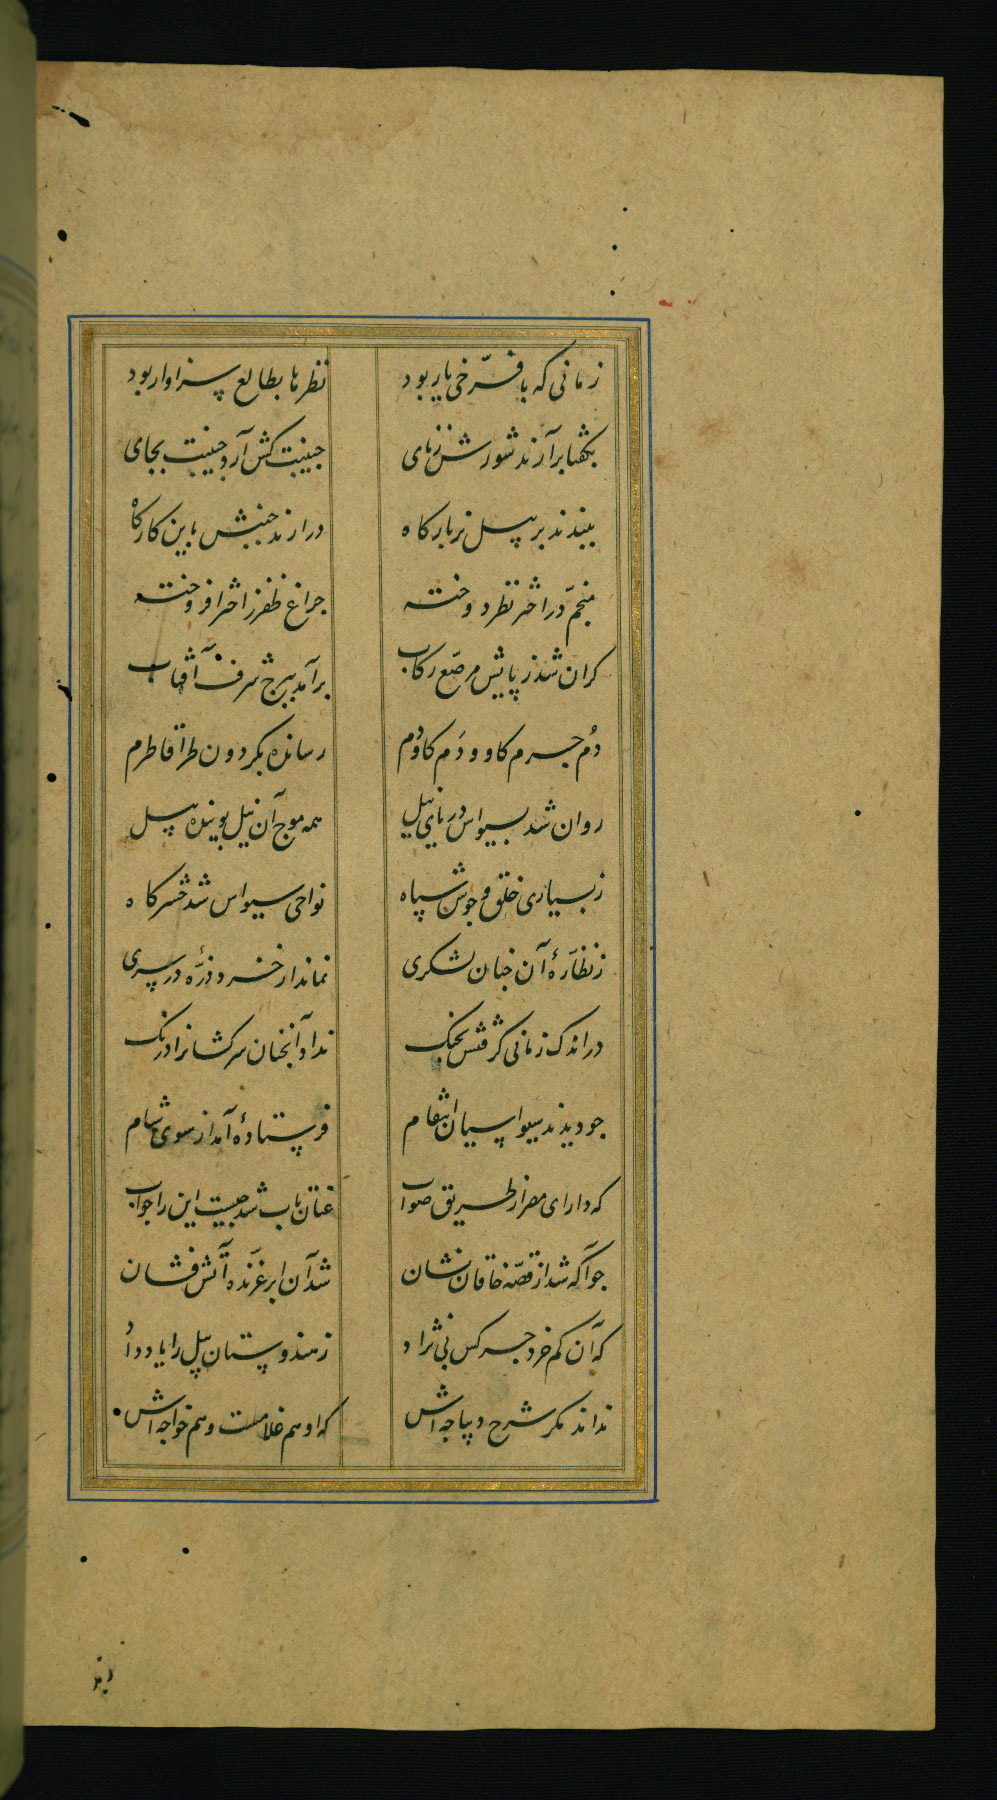 زمانی که با فرّخی یار بود نظرها بطالع سزاوار بود
بگفتا برآرند شورش ز نای جنیبت کش آرد جنیبت بجای
ببندند بر پیل زر بارگاه درارند جنبش باین کارگاه
منجّم در اختر نظر دوخته چراغ ظفر ز اختر افروخته
گران شد ز پایش مرصّع رکاب برآمد ببرج شرف آفتاب
دُم چرم گاو و دَم گاودُم رسانده بگردون طراقا طرم
روان شد بسیواس دریای نیل همه موج آن نیل پوینده پیل
ز بسیاری خلق و جوش سپاه نواحی سیواس شد حشرگاه
ز نظّارهٔ آن چنان لشکری نماند از خرد ذرّه در سری
در اندک زمانی گرفتش بجنگ نداد آنچنان سرکشانرا درنگ
چو دیدند سیواسیان انتقام فرستادهٔ آمد از سوی شام
که دارای مصر از طریق صواب عنان تاب شد چیست این را جواب
چو آگه شد از قصّه خاقان نشان شد آن ابر غرّنده آتش فشان
که آن کم خرد چرکس نی نژاد ز هندوستان پیل را یاد داد
نداند مگر شرح دیباجه‌اش که او هم غلامست و هم خواجه‌اش